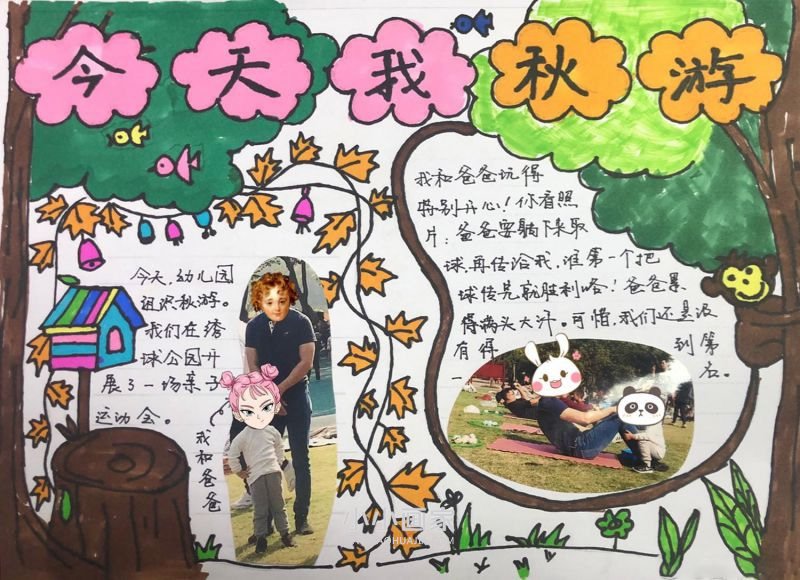 今天我秋游
今天,幼儿园
组织秋游。
我们在绣
球公园开
展了一场亲子
运动会。
我和爸爸
我和爸爸玩得
特别开心!你看照
片:爸爸要躺下来取
球再传给我,谁第一个把
球传完就胜利咯!爸爸累
得满头大汗。可惜,我们还是没
有得到第
一名。
小小画家